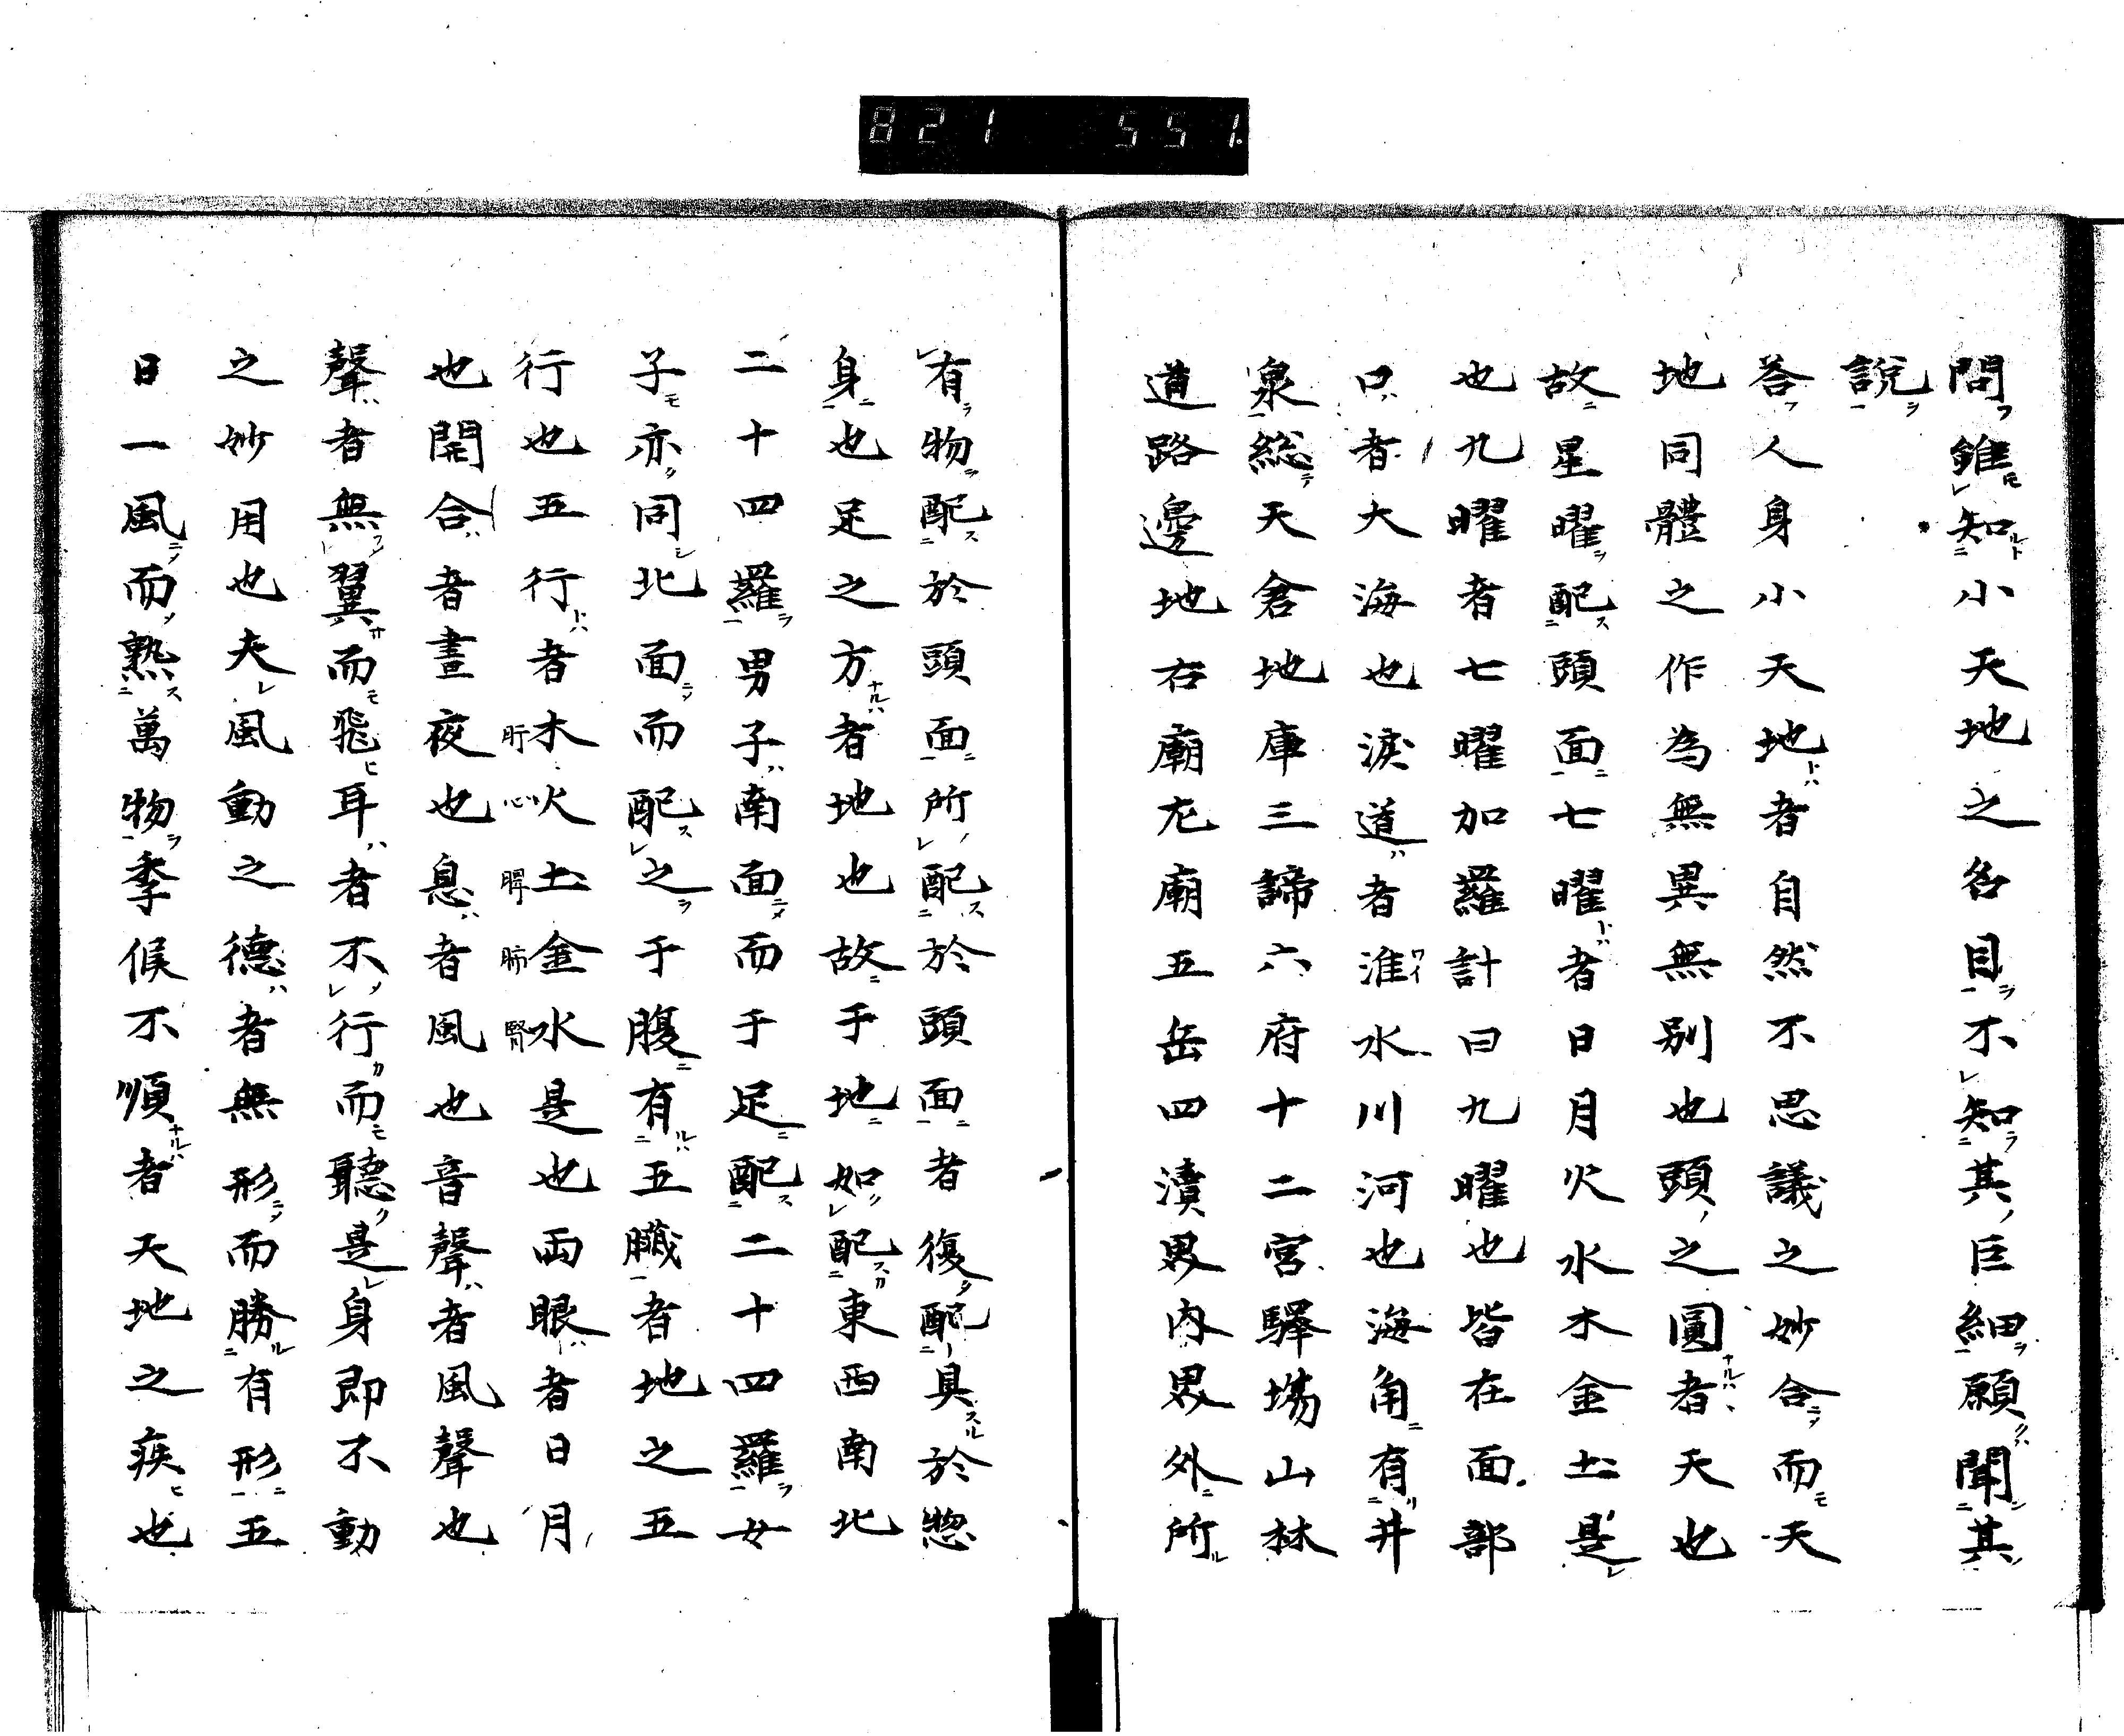 821 551.
問雖知小天地之名目不知其巨細願聞其
説
答人身小天地者自然不思議之妙合而天
地同體之作為無異無別也頭之圓者天也
故星曜配頭面七曜者日月火水木金土是
也九曜者七曜加羅計曰九曜也皆在面部
口者大海也涙道者淮水川河也海角有井
泉総天倉地庫三諦六府十二宮驛場山林
道路邊地右廟左廟五岳四瀆界内界外所
有物配於頭面所配於頭面者復配具於惣
身也足之方者地也故手地如配東西南北
二十四羅男子南面而于足配二十四羅女
子亦同北面而配之于腹有五臓者地之五
行也五行者木火土金水是也両眼者日月
肝心脾肺腎
也開合者晝夜也息者風也音聲者風聲也
聲者無翼而飛耳者不行而聽是身即不動
之妙用也夫風動之德者無形而勝有形五
日一風而熟萬物季候不順者天地之疾也